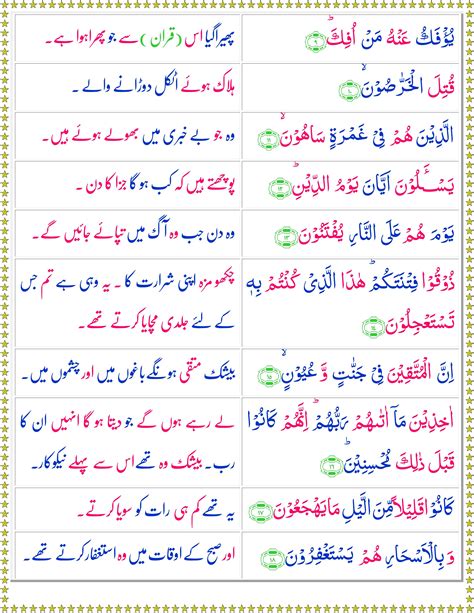 یُّؤْفَكُ عَنْهُ مَنْ اُفِكَؕ ﴿۹﴾
پھیرا گیا اس (قرآن) سے جو پھرا ہوا ہے۔
قُتِلَ الْخَرّٰصُوْنَۙ ﴿۱۰﴾
ہلاک ہوئے اٹکل دوڑانے والے ۔
الَّذِیْنَ هُمْ فِیْ غَمْرَةٍ سَاهُوْنَۙ ﴿۱۱﴾
وہ جو بے خبری میں بھولے ہوئے ہیں۔
یَسْـَٔلُوْنَ اَیَّانَ یَوْمُ الدِّیْنِؕ ﴿۱۲﴾
پوچھتے ہیں کہ کب ہو گا جزا کا دن ۔
یَوْمَ هُمْ عَلَی النَّارِ یُفْتَنُوْنَ ﴿۱۳﴾
وہ دن جب وہ آگ میں تپائے جائیں گے۔
ذُوْقُوْا فِتْنَتَكُمْؕ هٰذَا الَّذِیْ كُنْتُمْ بِهٖ
تَسْتَعْجِلُوْنَ ﴿۱۴﴾
چکھو مزہ اپنی شرارت کا ۔ یہ وہی ہے تم جس
کے لئے جلدی مچایا کرتے تھے۔
اِنَّ الْمُتَّقِیْنَ فِیْ جَنّٰتٍ وَّ عُیُوْنٍۙ ﴿۱۵﴾
بیشک متقی ہونگے باغوں میں اور چشموں میں۔
اٰخِذِیْنَ مَاۤ اٰتٰىهُمْ رَبُّهُمْؕ اِنَّهُمْ كَانُوْا
قَبْلَ ذٰلِكَ مُحْسِنِیْنَؕ ﴿۱۶﴾
لے رہے ہوں گے جو دیتا ہو گا انہیں ان کا
رب۔ بیشک وہ تھے اس سے پہلے نیکوکار۔
كَانُوْا قَلِیْلًا مِّنَ الَّیْلِ مَا یَهْجَعُوْنَ ﴿۱۷﴾
یہ تھے کم ہی رات کو سویا کرتے۔
وَ بِالْاَسْحَارِ هُمْ یَسْتَغْفِرُوْنَ ﴿۱۸﴾
اور صبح کے اوقات میں وہ استغفار کرتے تھے۔